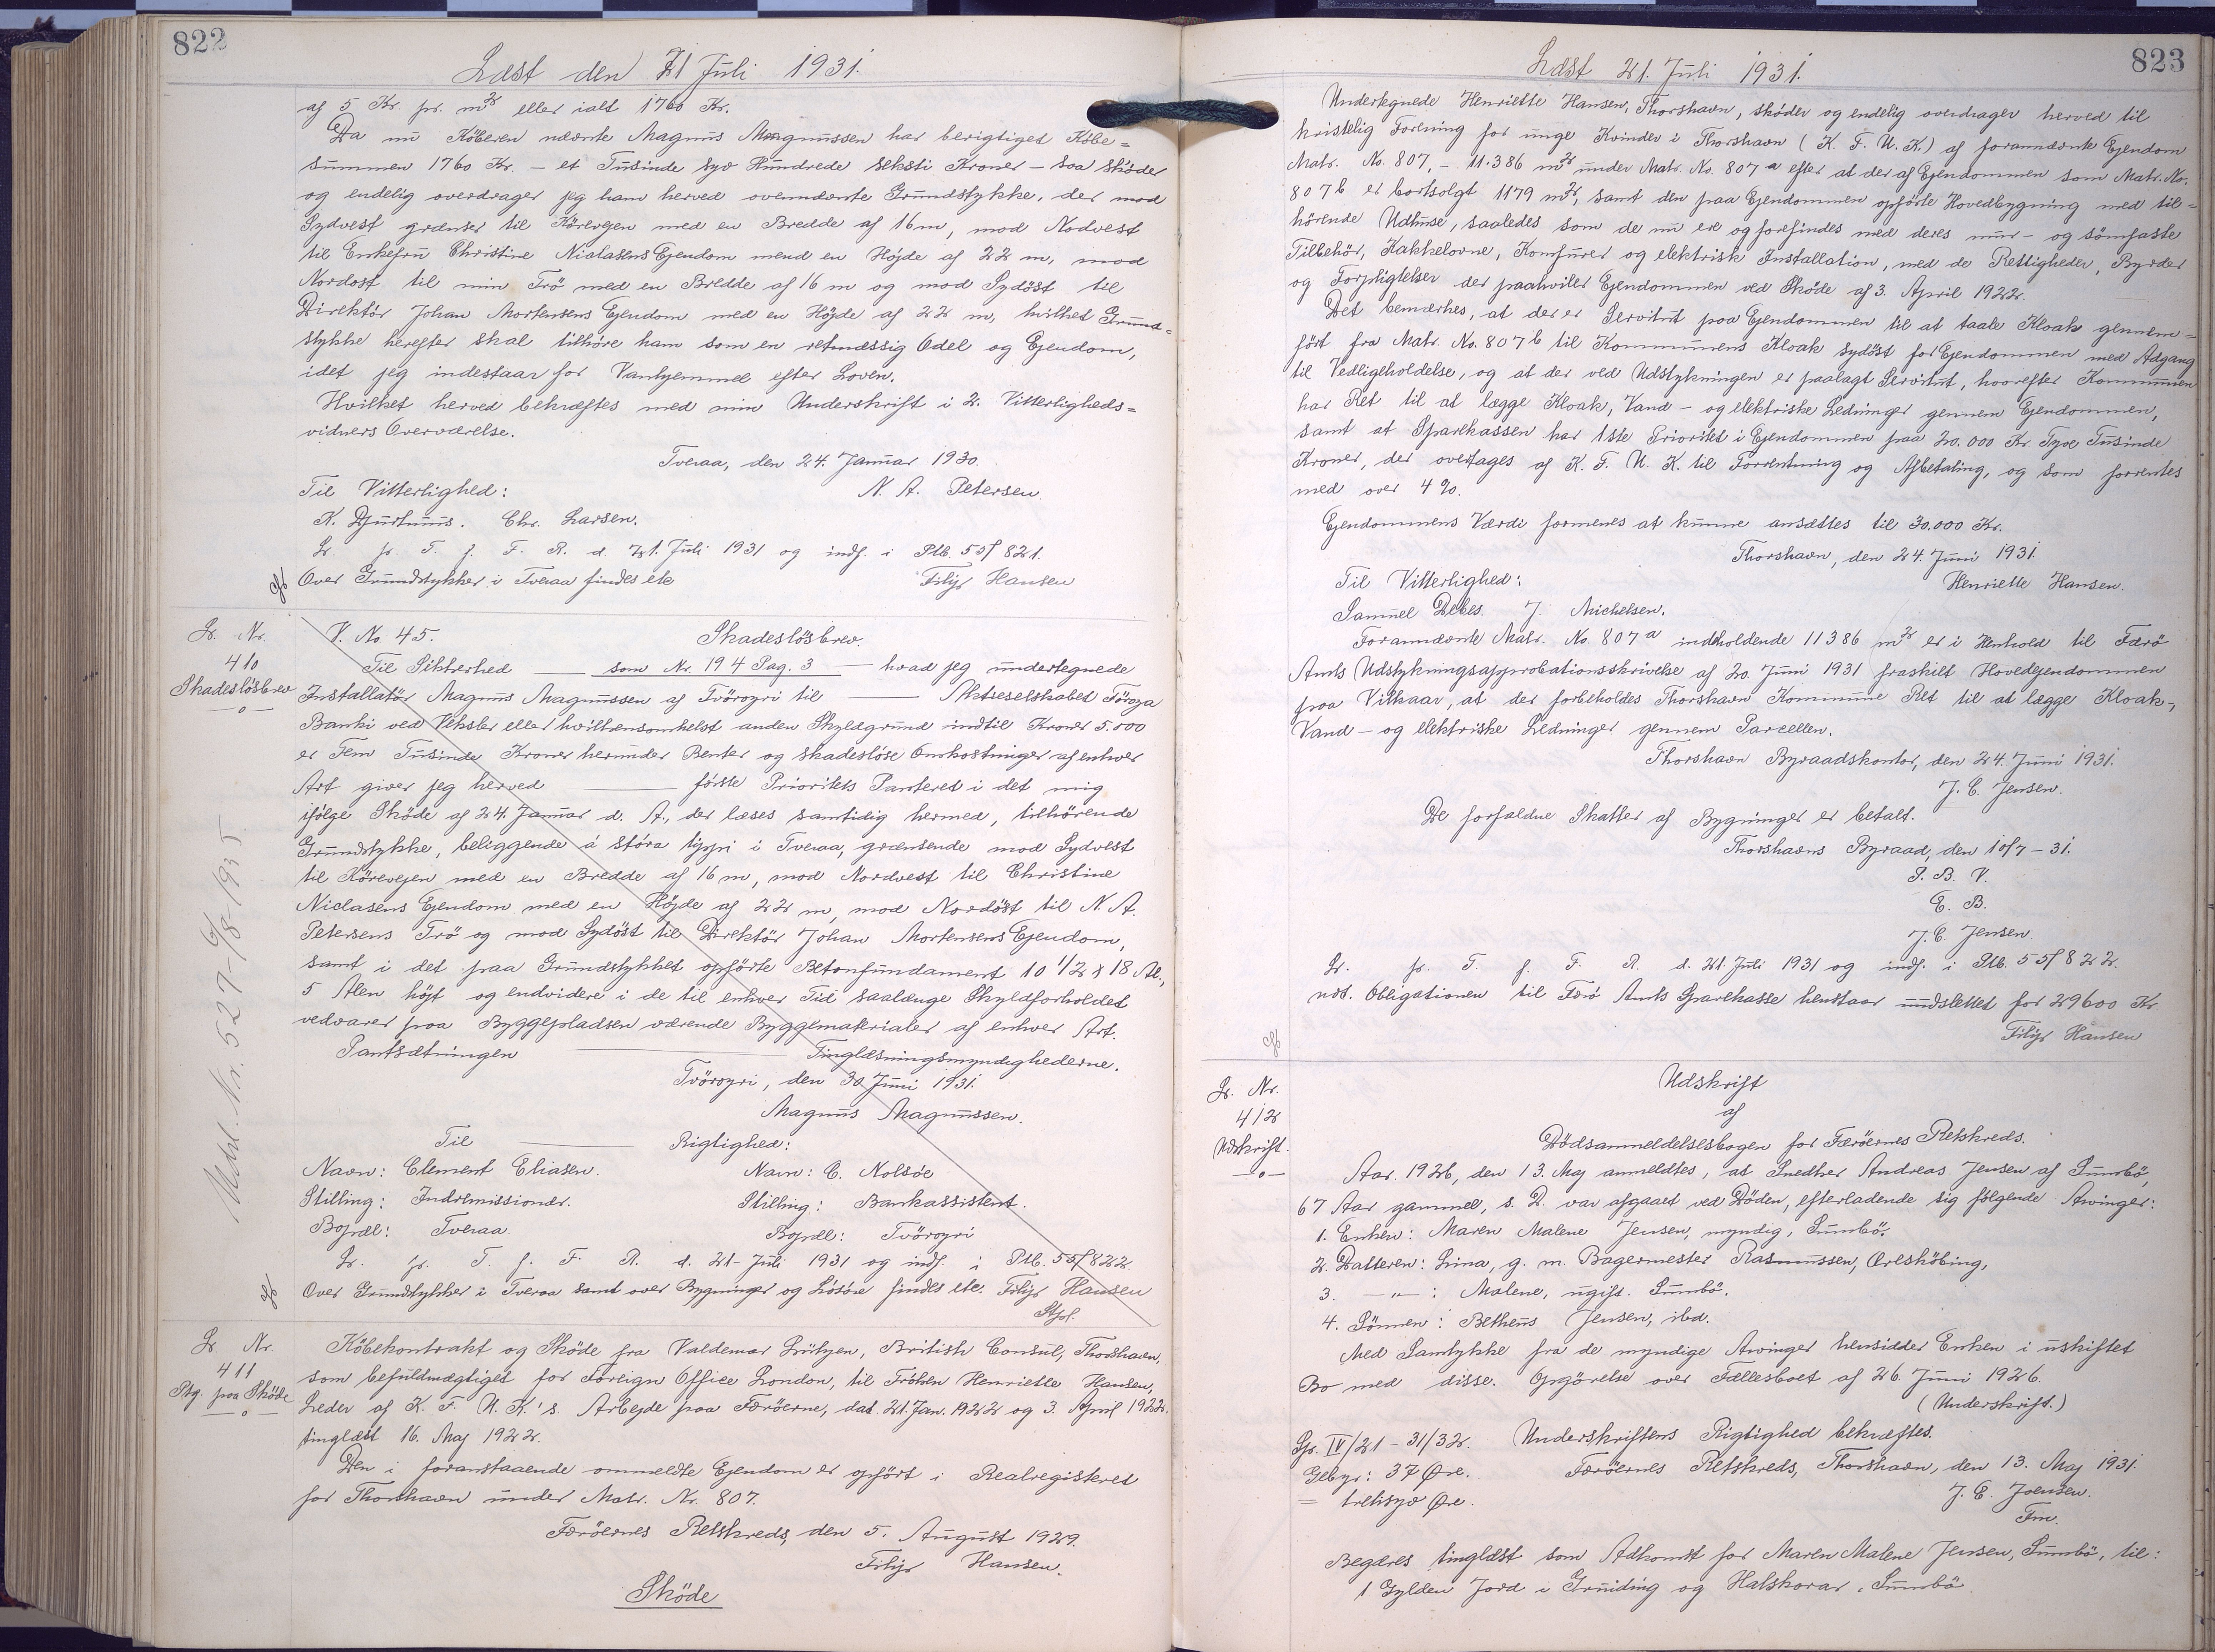 822
Læst den 21 Juli 1931.
af 5 Kr. pr. m² eller ialt 1760 Kr.
Da nu Köberen nævnte Magnus Magnussen har berigtiget Købe=
summen 1760 Kr. – et Tusinde syv Hundrede seksti Kroner – saa sköder
og endelig overdrager jeg ham herved ovennævnte Grundstykke, der mod
Sydvest grænser til Körevejen med en Bredde af 16 m, mod Nordvest
til Enkefru Christine Niclasens Ejendom mend en Höjde af 22 m, mod
Nordost til min Trö med en Bredde af 16 m og mod Sydöst til
Direktör Johan Mortensens Ejendom med en Höjde af 22 m, hvilket Grund=
stykke herefter skal tilhöre ham som en retmæssig Odel og Ejendom,
idet jeg indestaar for Vanhjemmel efter Loven.
Hvilket herved bekræftes med min Underskrift i 2. Vitterligheds=
vidners Overværelse.
Tveraa, den 24. Januar 1930.
Til Vitterlighed: N. A. Petersen.
K. Djurhuus. Chr. Larsen.
Lr. pr. T. f. F. R. d. 21. Juli 1931 og indf. i Ptb. 55f 821.
Over Grundstykker i Tveraa findes etc Filip Hansen
Lr. Nr.
410
Skadeslösbrev
—o—
V. No. 45. Skadeslösbrev.
Til Sikkerhed —— som Nr 194 Pag. 3 —— hvad jeg undertegnede
Installatör Magnus Magnussen af Tvöroyri til —— Aktieselskabet Föroya
Banki ved Veksler eller hvilkensomhelst anden Skyldgrund indtil Kroner 5.000
er Fem Tusinde Kroner herunder Renter og skadeslöse Omkostninger af enhver
Art giver jeg herved —— förste Prioritets Panteret i det mig
ifölge Sköde af 24. Januar d. A., der læses samtidig hermed, tilhörende
Grundstykke, beliggende á stóra tippi i Tveraa, grænsende mod Sydvest
til Körevejen med en Bredde af 16 m, mod Nordvest til Christine
Niclasens Ejendom med en Höjde af 22 m, mod Nordöst til N. A.
Petersens Trö og mod Sydöst til Direktör Johan Mortensens Ejendom,
samt i det paa Grundstykket opförte Betonfundament 10 1/2 x 18 Al.,
5 Alen höjt og endvidere i de til enhver Tid saalænge Skyldforholdet
vedvarer paa Byggepladsen værende Byggematerialer af enhver Art.
Pantsætningen —— Tinglæsningsmyndighederne.
Tvöroyri, den 30. Juni 1931.
Magnus Magnussen.
Til —— Rigtighed:
Navn: Clement Eliasen. Navn: C. Nolsöe
Stilling: Indremissionær. Stilling: Bankassistent.
Bopæl: Tveraa Bopæl: Tvöroyri
Lr. pr. T. f. F. R. d. 21. Juli 1931 og indf. i Ptb. 55f 822.
Over Grundstykker i Tveraa samt over Bygninger og Lösöre findes etc. Filip Hansen
Udsl. Nr. 527-6/8-1935.
Lr. Nr.
411
Ptg. paa Sköde
—o—
Köbekontrakt og Sköde fra Valdemar Lützen, British Consul, Thorshavn,
som befuldmægtiget for Foreign Office London, til Fröken Henriette Hansen,
Leder af K. F. U. K.'s. Arbejde paa Færöerne, dat. 21. Jan. 1922 og 3. April 1922.
tinglæst 16. Maj 1922.
Den i foranstaaende ommeldte Ejendom er opfört i Realregisteret
for Thorshavn under Matr. Nr. 807.
Færöernes Retskreds, den 5. August 1929.
Filip Hansen.
Sköde
823
Læst 21. Juli 1931.
Undertegnede Henriette Hansen, Thorshavn, sköder og endelig overdrager herved til
kristelig Forening for unge Kvinder i Thorshavn (K. F. U. K.) af forannævnte Ejendom
Matr. No. 807, – 11.386 m² under Matr. No. 807 a efter at der af Ejendommen som Matr. No.
807 b er bortsolgt 1179 m², samt den paa Ejendommen opförte Hovedbygning med til=
hörende Udhuse, saaledes som de nu ere og forefindes med deres mur- og sömfaste
Tilbehör, Kakkelovne, Komfurer og elektrisk Installation, med de Rettigheder, Byrder
og Forpligtelser der paahviler Ejendommen ved Sköde af 3. April 1922.
Det bemærkes, at der er Servitut paa Ejendommen til at taale Kloak gennem=
fört fra Matr. No. 807 b til Kommunens Kloak sydöst for Ejendommen med Adgang
til Vedligeholdelse, og at der ved Udstykningen er paalagt Servitut, hvorefter Kommunen
har Ret til at lægge Kloak, Vand- og elektriske Ledninger gennem Ejendommen,
samt at Sparekassen har 1ste Prioritet i Ejendommen paa 20.000 Kr Tyve Tusinde
Kroner, der overtages af K. F. U. K. til Forrentning og Afbetaling, og som forrentes
med over 4 %.
Ejendommens Værdi formenes at kunne ansættes til 30.000 Kr.
Thorshavn, den 24. Juni 1931.
Til Vitterlighed: Henriette Hansen.
Samuel Debes. J. Michelsen.
Forannævnte Matr. No. 807 a indeholdende 11386 m² er i Henhold til Færö
Amts Udstykningsapprobationsskrivelse af 20. Juni 1931 fraskilt Hovedejendommen
paa Vilkaar, at der forbeholdes Thorshavn Kommune Ret til at lægge Kloak,
Vand- og elektriske Ledninger gennem Parcellen.
Thorshavn Byraadskontor, den 24. Juni 1931.
J. C. Jensen.
De forfaldne Skatter af Bygninger er betalt.
Thorshavns Byraad, den 10/7-31.
P. B. V.
E. B.
J. C. Jensen
Lr. pr. T. f. F. R. d. 21. Juli 1931 og indf. i Ptb. 55f 822.
ndt. Obligationen til Færö Amts Sparekasse henstaar uudslettet for 29600 Kr.
Filip Hansen
Lr. Nr.
412
Udskrift.
—o—
Udskrift
af
Dödsanmeldelsesbogen for Færöernes Retskreds.
Aar 1926, den 13. Maj anmeldtes, at Snedker Andreas Jensen af Sumbö,
67 Aar gammel, s. D. var afgaaet ved Döden, efterladende sig fölgende Arvinger:
1. Enken: Maren Malene Jensen, myndig, Sumbö.
2. Datteren: Lina, g. m. Bagermester Rasmussen, Ærøskøbing,
3. —"— : Malene, ugift. Sumbö.
4. Sönnen: Betheus Jensen, ibd.
Med Samtykke fra de myndige Arvinger hensidder Enken i uskiftet
Bo med disse. Opgörelse over Fællesboet af 26. Juni 1926.
(Underskrift.)
Gr. IV/21 – 31/32. Udskriftens Rigtighed bekræftes.
Gebyr: 37 Øre. Færöernes Retskreds, Thorshavn, den 13. Maj 1931.
= tretisyv Øre. J. E. Joensen.
Fm.
Begæres tinglæst som Adkomst for Maren Malene Jensen, Sumbö, til:
1 Gylden Jord i Gruiding og Halskorar i Sumbö